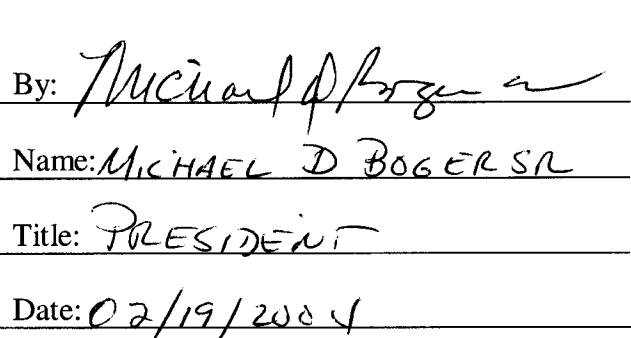 By: Michael D Boger Sr
Name: MICHAEL D BOGER SR
Title: PRESIDENT
Date: 02/19/2004